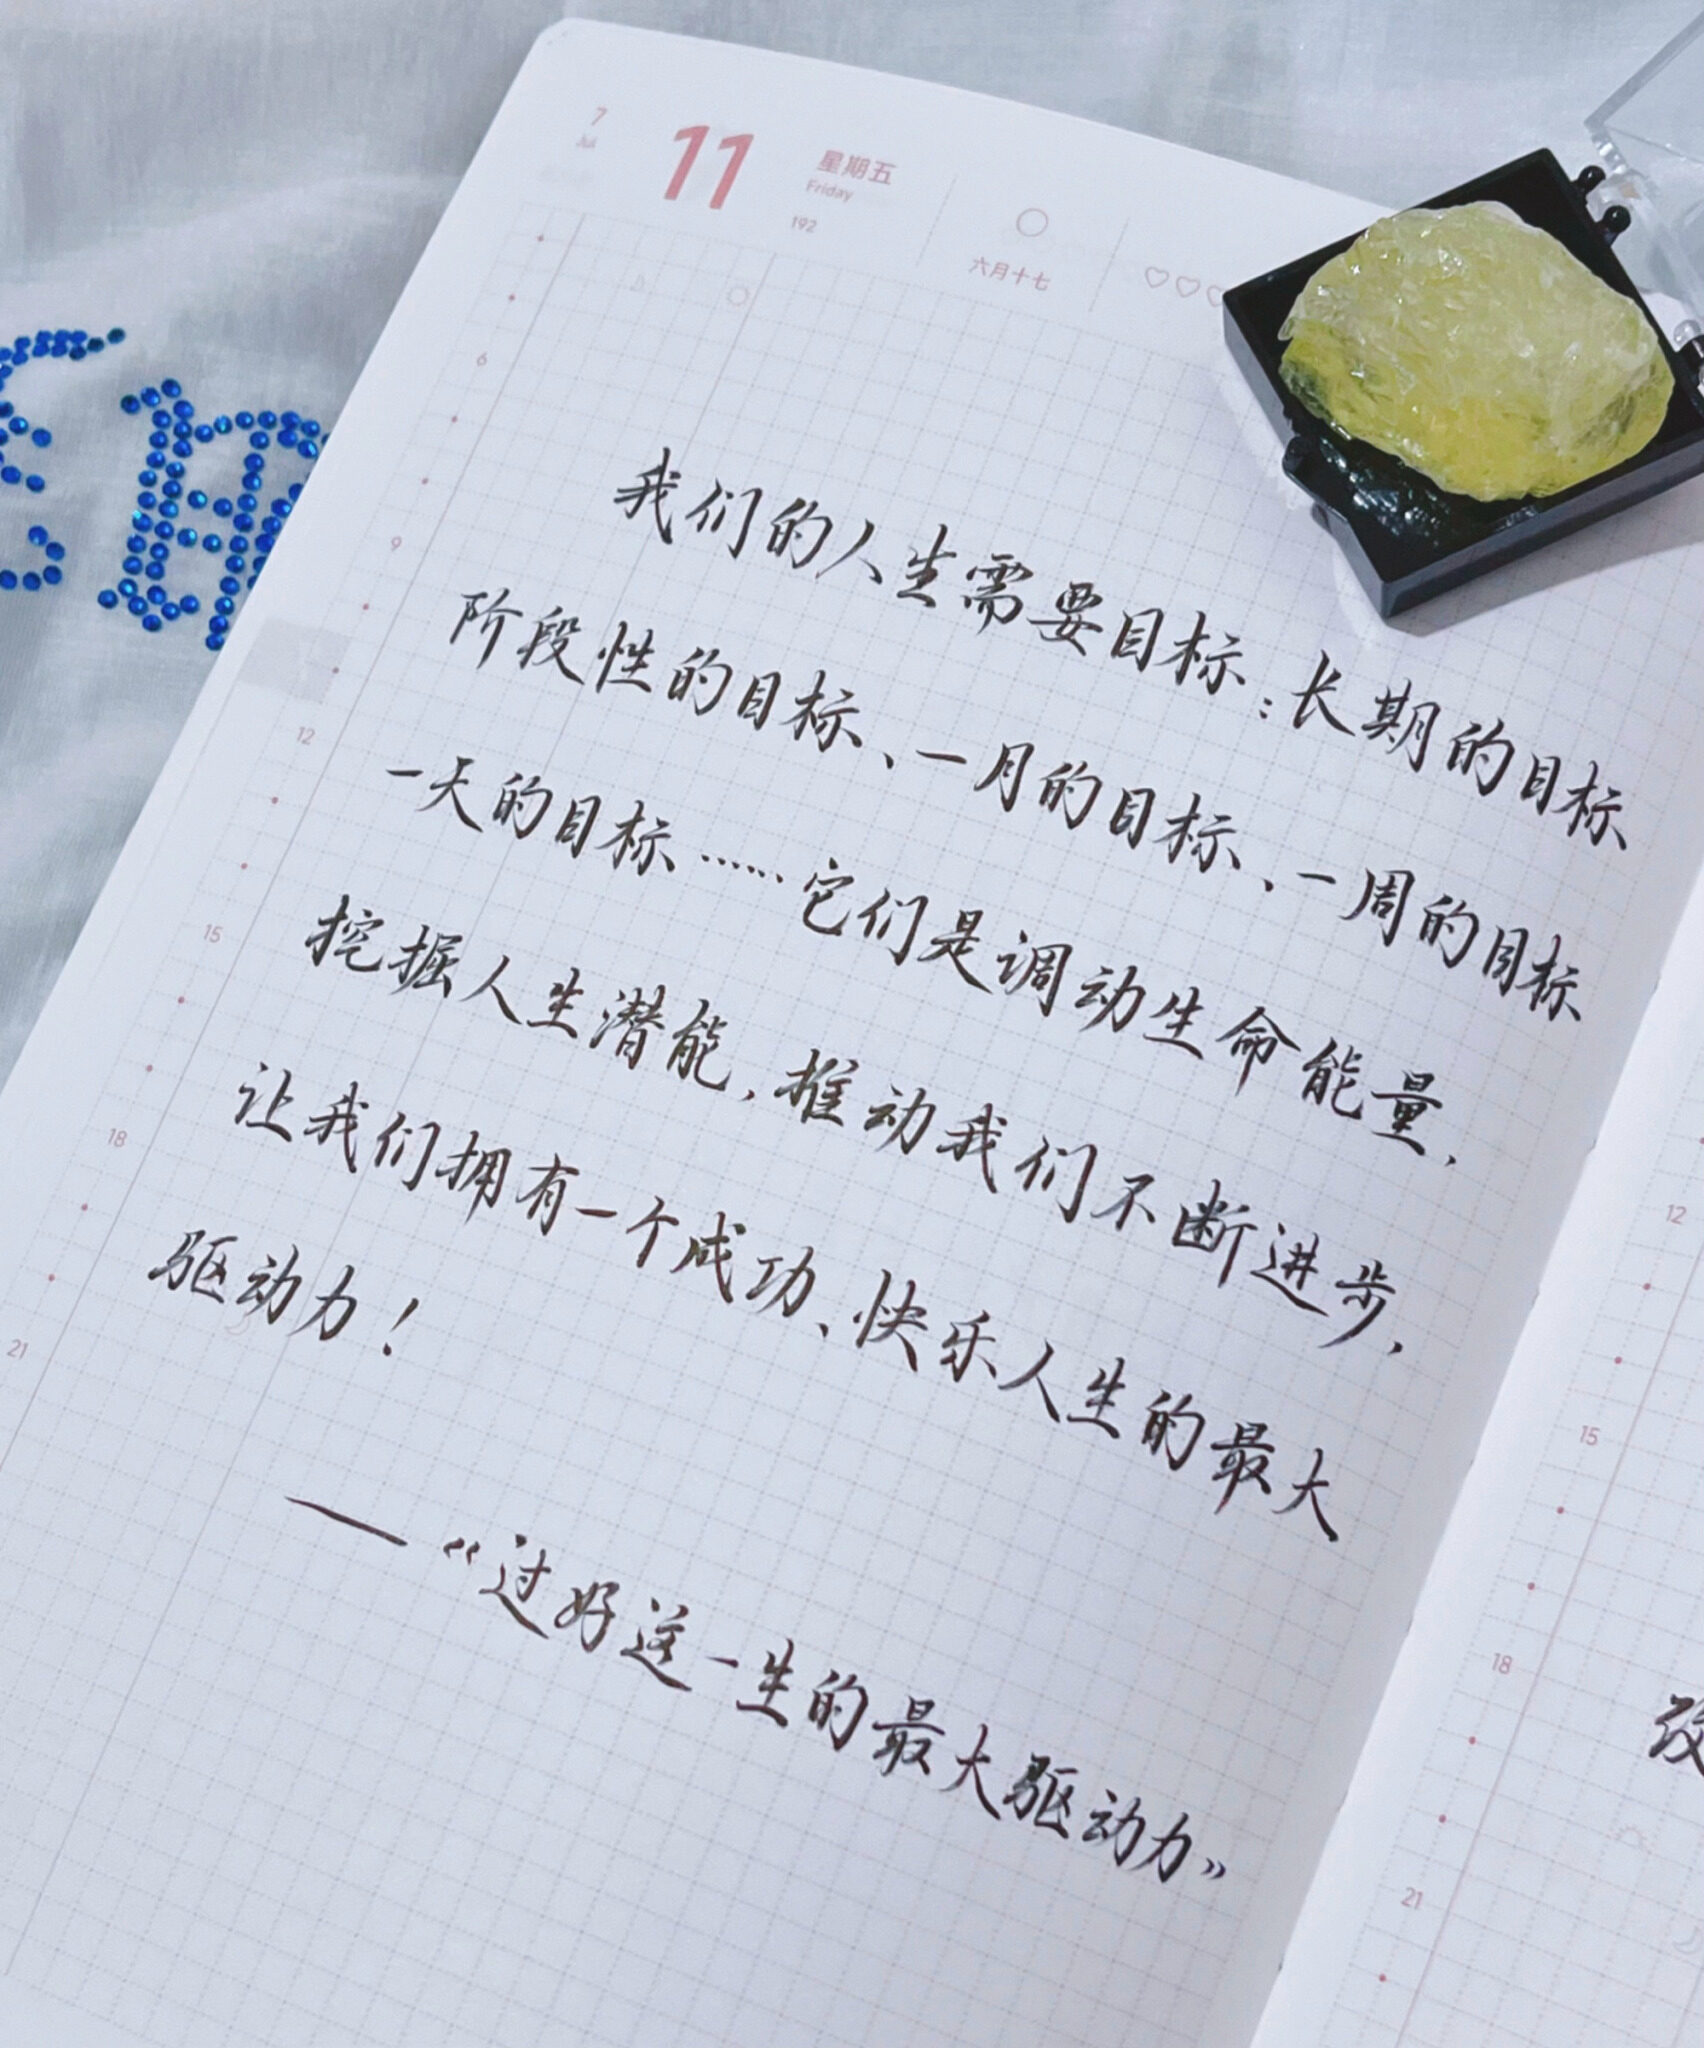 7
Jul
11
星期五
Friday
192
六月十七
6
9
12
15
18
21
我们的人生需要目标：长期的目标
阶段性的目标、一月的目标、一周的目标
一天的目标……它们是调动生命能量，
挖掘人生潜能，推动我们不断进步，
让我们拥有一个成功、快乐人生的最大
驱动力！
—《过好这一生的最大驱动力》
12
15
18
21